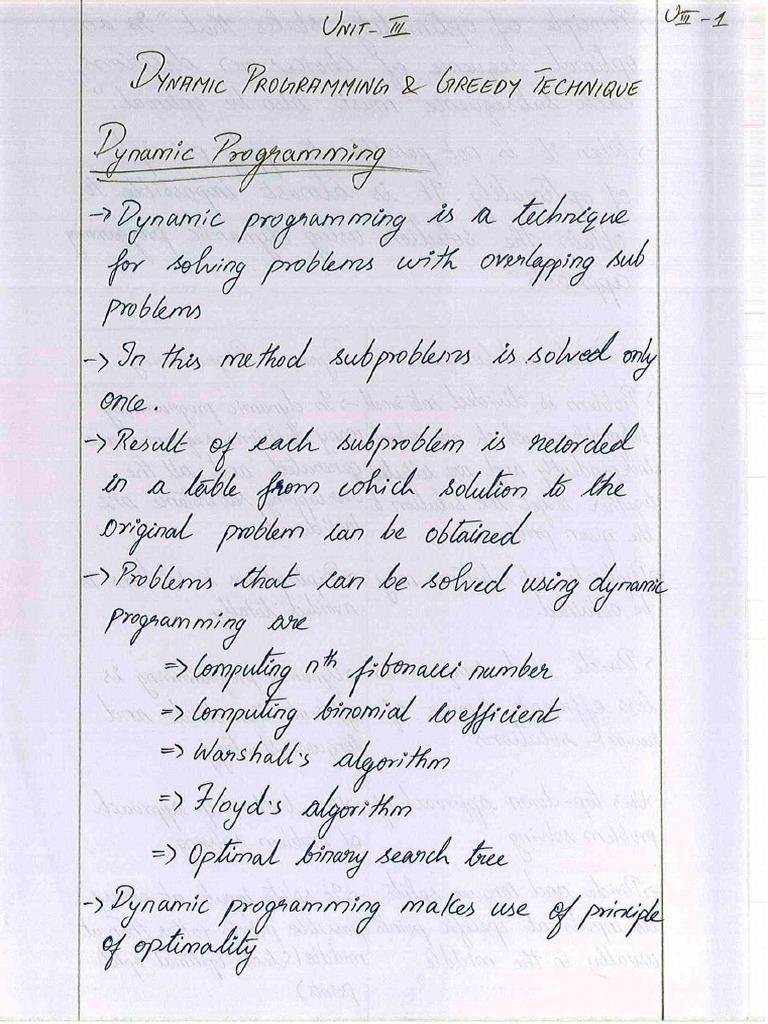 UNIT-III
UIII-1
DYNAMIC PROGRAMMING & GREEDY TECHNIQUE
Dynamic Programming
-> Dynamic programming is a technique
for solving problems with overlapping sub
problems
-> In this method subproblems is solved only
once.
-> Result of each subproblem is recorded
in a table from which solution to the
original problem can be obtained
-> Problems that can be solved using dynamic
programming are
=> Computing nth fibonacci number
=> Computing binomial coefficient
=> Warshall's algorithm
=> Floyd's algorithm
=> Optimal binary search tree
-> Dynamic programming makes use of principle
of optimality